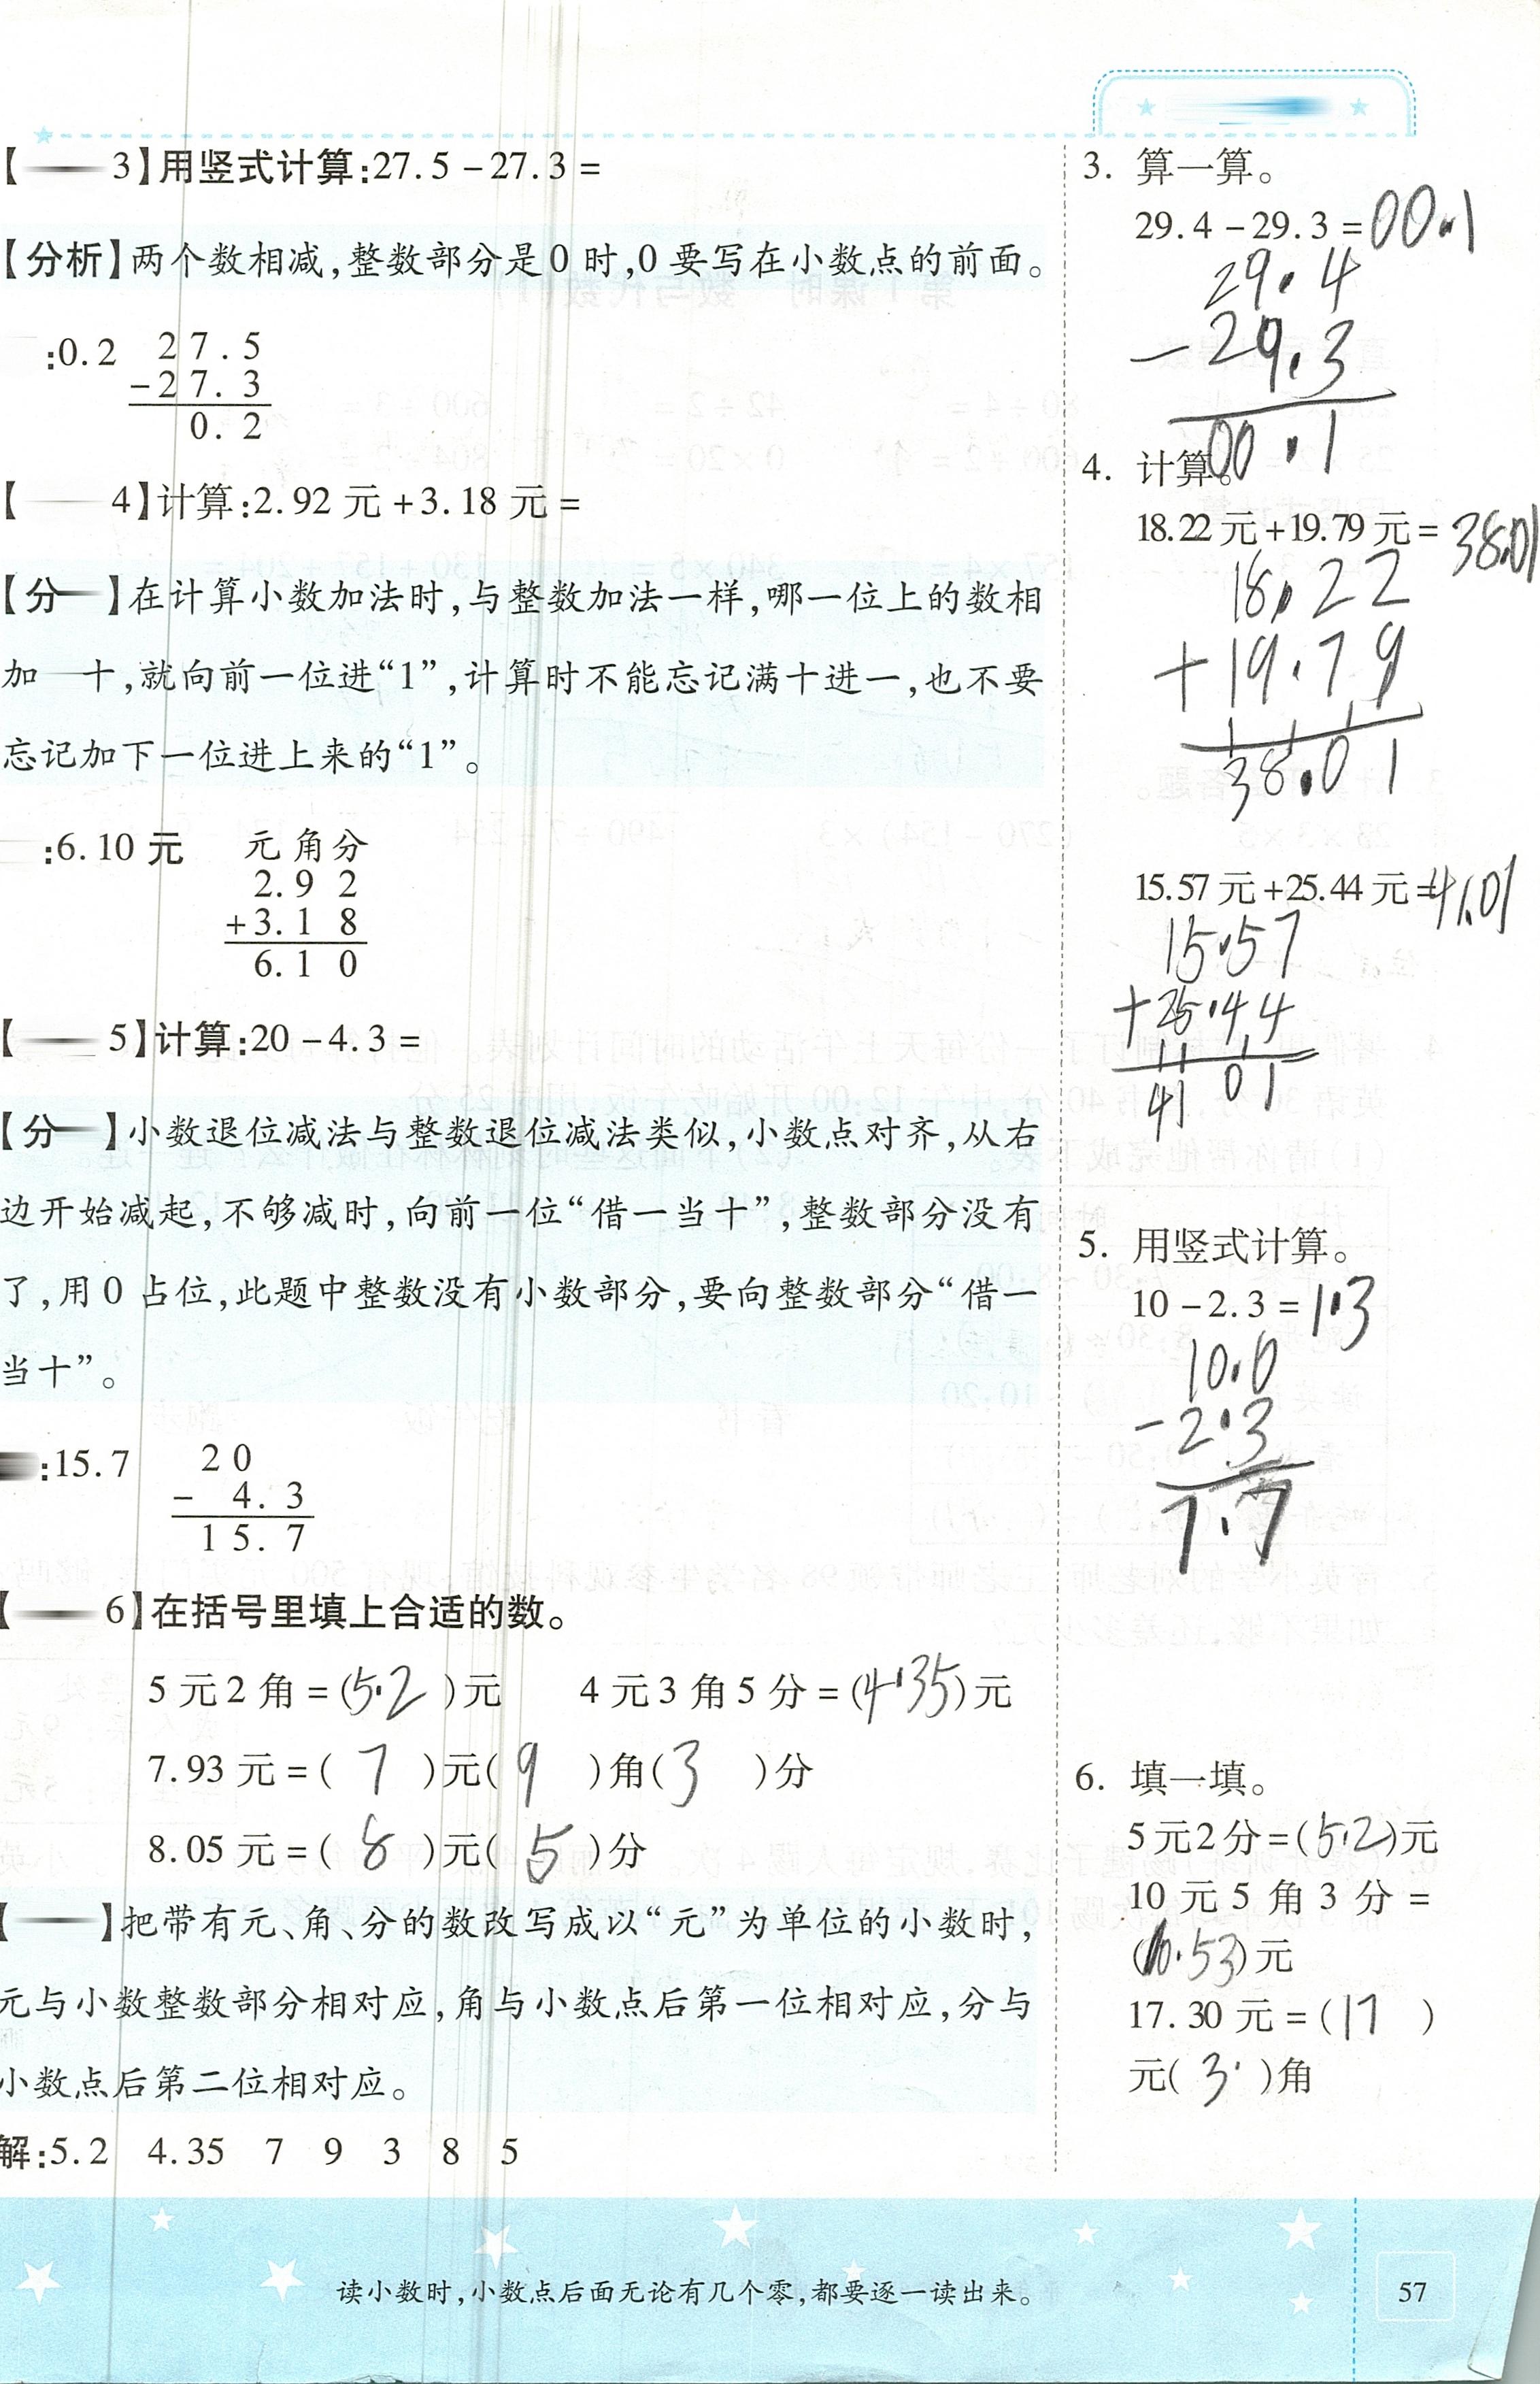 【 3】用竖式计算:27.5-27.3=
【分析】两个数相减,整数部分是0时,0要写在小数点的前面。
:0.2
27.5
-27.3
0.2
【 4】计算:2.92元+3.18元=
【分 】在计算小数加法时,与整数加法一样,哪一位上的数相
加 十,就向前一位进“1”,计算时不能忘记满十进一,也不要
忘记加下一位进上来的“1”。
:6.10元
元角分
2.92
+3.18
6.10
【 5】计算:20-4.3=
【分 】小数退位减法与整数退位减法类似,小数点对齐,从右
边开始减起,不够减时,向前一位“借一当十”,整数部分没有
了,用0占位,此题中整数没有小数部分,要向整数部分“借一
当十”。
:15.7
20
- 4.3
15.7
【 6】在括号里填上合适的数。
5元2角=(5.2)元 4元3角5分=(4.35)元
7.93元=(7)元(9)角(3)分
8.05元=(8)元(5)分
【 】把带有元、角、分的数改写成以“元”为单位的小数时,
元与小数整数部分相对应,角与小数点后第一位相对应,分与
小数点后第二位相对应。
解:5.2 4.35 7 9 3 8 5
3. 算一算。
29.4-29.3=00.1
29.4
-29.3
00.1
4. 计算。
18.22元+19.79元=38.01
18.22
+19.79
38.01
15.57元+25.44元=41.01
15.57
+25.44
41 01
5. 用竖式计算。
10-2.3=1.3
10.0
-2.3
7.7
6. 填一填。
5元2分=(5.2)元
10元5角3分=
(10.53)元
17.30元=(17)
元(3)角
读小数时,小数点后面无论有几个零,都要逐一读出来。
57